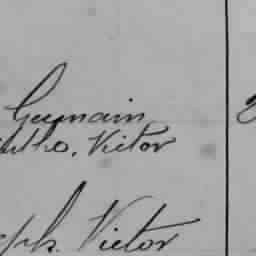 Germain
tho. Victor
eph. Victor